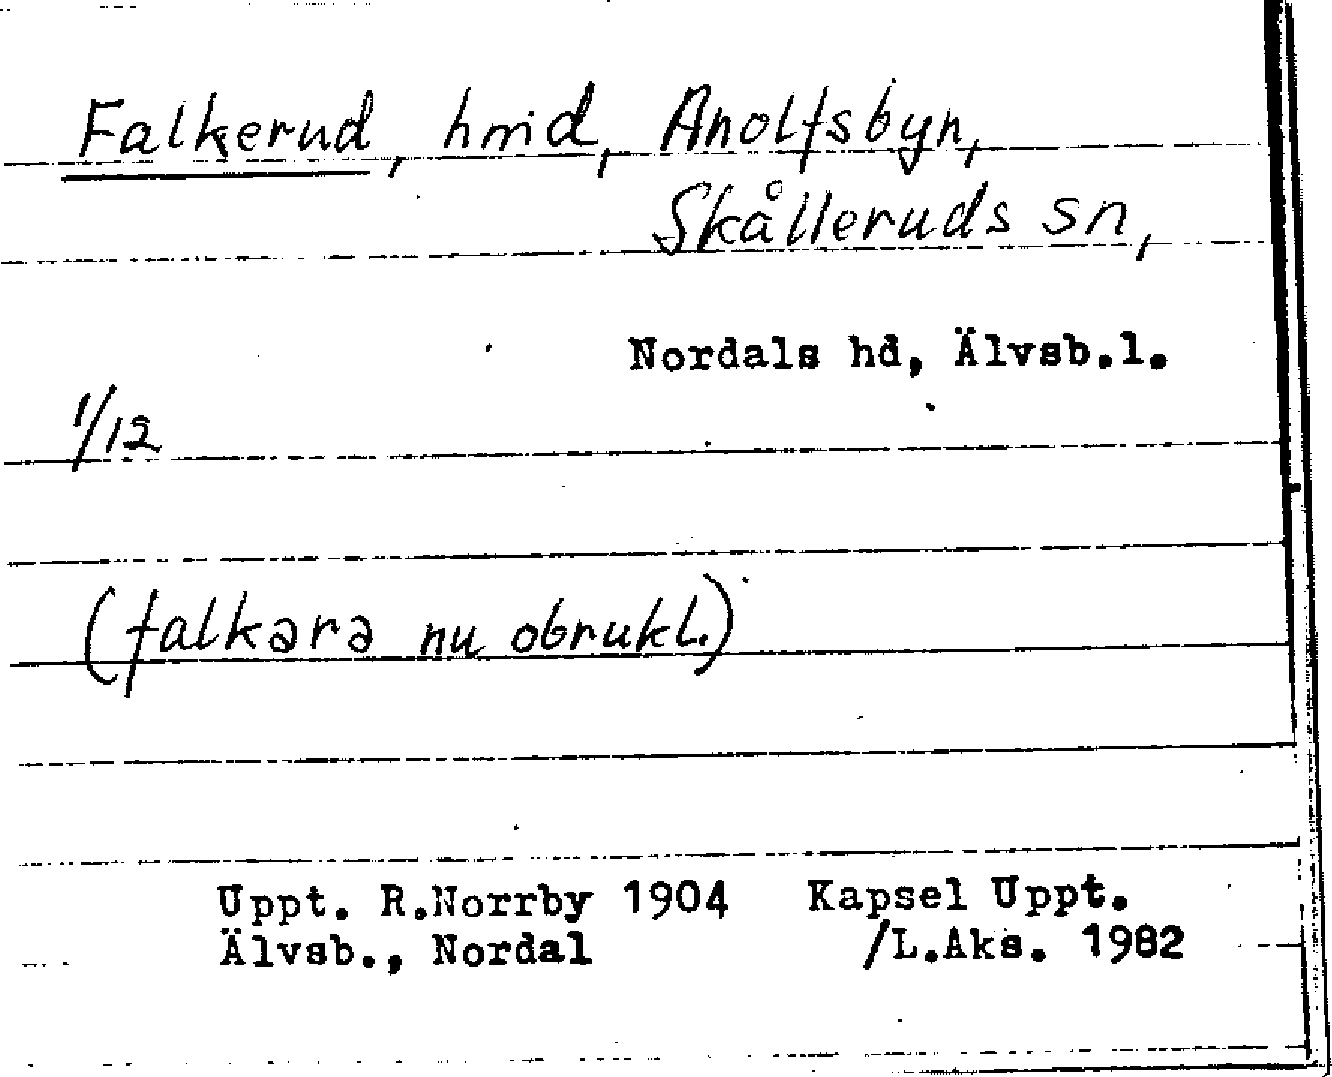 Falkerud, hmd, Anolfsbyn,
Skålleruds sn,
Nordals hd, Älvsb.l.
1/12
(falkərə nu obrukl.)
Uppt. R.Norrby 1904 Kapsel Uppt.
Älvsb., Nordal /L.Aks. 1982